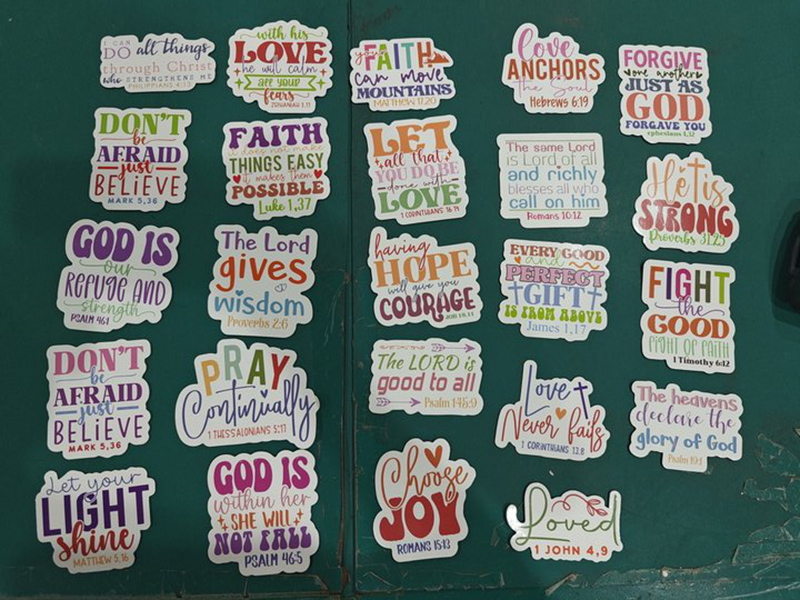 I CAN
DO all things
through Christ
who STRENGTHENS ME
PHILIPPIANS 4:13
with his
LOVE
he will calm
all your
fears
ZEPHANIAH 3:17
FAITH
can move
MOUNTAINS
MATTHEW 17,20
love
ANCHORS
the Soul
Hebrews 6:19
FORGIVE
one another
JUST AS
GOD
FORGAVE YOU
ephesians 4,32
DON'T
be
AFRAID
just
BELIEVE
MARK 5,36
FAITH
it does not make
THINGS EASY
it makes them
POSSIBLE
Luke 1,37
LET
all that
YOU DO BE
done with
LOVE
1 CORINTHIANS 16 14
The same Lord
is Lord of all
and richly
blesses all who
call on him
Romans 10:12
He is
STRONG
Proverbs 31:25
GOD IS
our
REFUGE AND
strength
PSALM 46:1
The Lord
gives
wisdom
Proverbs 2:6
having
HOPE
will give you
COURAGE
JOB 18:11
EVERY GOOD
and
PERFECT
GIFT
IS FROM ABOVE
James 1,17
FIGHT
the
GOOD
FIGHT OF FAITH
1 Timothy 6:12
DON'T
be
AFRAID
just
BELIEVE
MARK 5,36
PRAY
Continually
1 THESSALONIANS 5:17
The LORD is
good to all
Psalm 145:9
Love
Never fails
1 CORINTHIANS 13:8
The heavens
declare the
glory of God
Psalm 19:1
Let your
LIGHT
shine
MATTHEW 5,16
GOD IS
within her
SHE WILL
NOT FALL
PSALM 46:5
Choose
JOY
ROMANS 15:13
Loved
1 JOHN 4,9